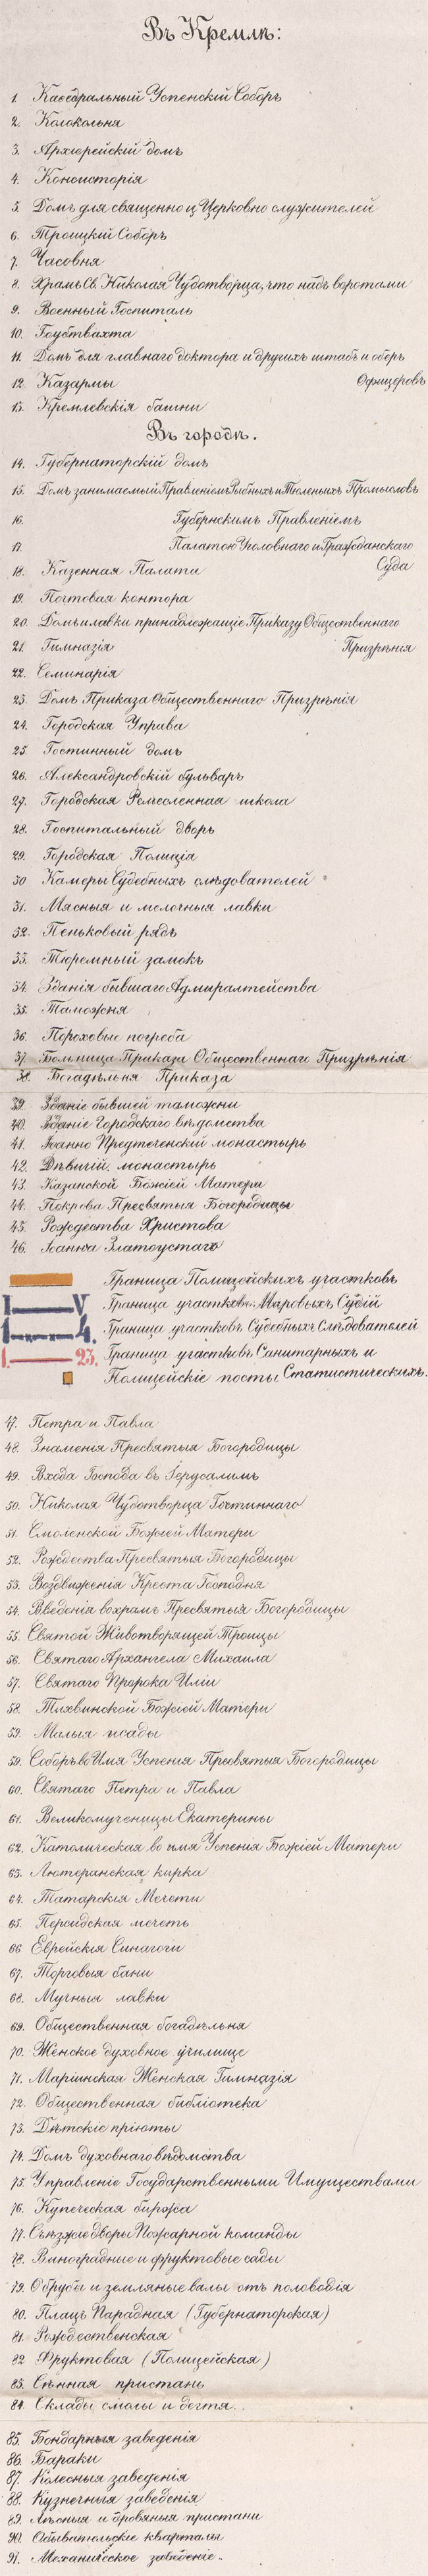 Въ Кремлѣ:
1. Каѳедральный Успенскій Соборъ
2. Колокольня
3. Архіерейскій домъ
4. Консисторія
5. Домъ для священно и Церковно служителей
6. Троицкій Соборъ
7. Часовня
8. Храмъ Св. Николая Чудотворца, что надъ воротами
9. Военный Госпиталь
10. Гоубтвахта
11. Домъ для главнаго доктора и другихъ штабъ и оберъ
Офицеровъ
12. Казармы
13. Кремлевскія башни
Въ городѣ.
14. Губернаторскій домъ
15. Домъ занимаемый Правленіемъ Рыбныхъ и Тюленьихъ Промысловъ
16. Губернскимъ Правленіемъ
17. Палатою Уголовнаго и Гражданскаго
Суда
18. Казенная Палата
19. Почтовая контора
20. Домъ и лавки принадлежащіе Приказу Общественнаго
Призрѣнія
21. Гимназія
22. Семинарія
23. Домъ Приказа Общественнаго Призрѣнія
24. Городская Управа
25 Гостинный домъ
26. Александровскій бульваръ
27. Городская Ремесленная школа
28. Госпитальный дворъ
29. Городская Полиція
30 Камеры Судебныхъ слѣдователей
31. Мясныя и мелочныя лавки
32. Пеньковый рядъ
33. Тюремный замокъ
34. Зданія бывшаго Адмиралтейства
35. Таможня
36. Пороховые погреба
37. Больница Приказа Общественнаго Призрѣнія
38. Богадѣльня Приказа
39. Зданіе бывшей таможни
40. Зданіе Городскаго вѣдомства
41. Іоанно Предтеченскій монастырь
42. Дѣвичій монастырь
43. Казанской Божіей Матери
44. Покрова Пресвятыя Богородицы
45. Рождества Христова
46. Іоанна Златоустаго
Граница Полицейскихъ участковъ
I V Граница участковъ Мировыхъ Судій
1 4. Граница участковъ Судебныхъ Слѣдователей
1. 23. Граница участковъ Санитарныхъ и
Статистическихъ.
Полицейскіе посты
47. Петра и Павла
48. Знаменія Пресвятыя Богородицы
49. Входа Господа въ Іерусалимъ
50. Николая Чудотворца Гостиннаго
51. Смоленской Божіей Матери
52. Рождества Пресвятыя Богородицы
53. Воздвиженія Креста Господня
54. Введенія во храмъ Пресвятыя Богородицы
55. Святой Животворящей Троицы
56. Святаго Архангела Михаила
57. Святаго Пророка Иліи
58. Тихвинской Божіей Матери
59. Малыя исады
59. Соборъ во Имя Успенія Пресвятыя Богородицы
60. Святаго Петра и Павла
61. Великомученицы Екатерины
62. Католическая во имя Успенія Божіей Матери
63. Лютеранская кирка
64. Татарскія Мечети
65. Персидская мечеть
66 Еврейскія Синагоги
67. Торговыя бани
68. Мучныя лавки
69. Общественная богадѣльня
70. Женское духовное училище
71. Маріинская Женская Гимназія
72. Общественная библіотека
73. Дѣтскіе пріюты
74. Домъ духовнаго вѣдомства
75. Управленіе Государственными Имуществами
76. Купеческая биржа
77. Съѣзжіе дворы Пожарной команды
78. Виноградные и фруктовые сады
79. Обрубы и земляные валы отъ половодія
80. Плацъ Парадная (Губернаторская)
81. Рождественская
82 Фруктовая (Полицейская)
83. Сѣнная пристань
84. Склады смолы и дегтя.
85. Бондарныя заведенія
86. Бараки
87. Колесныя заведенія
88. Кузнечныя заведенія
89. Лѣсныя и дровяныя пристани
90. Обывательскіе кварталы
91. Механическое заведеніе.